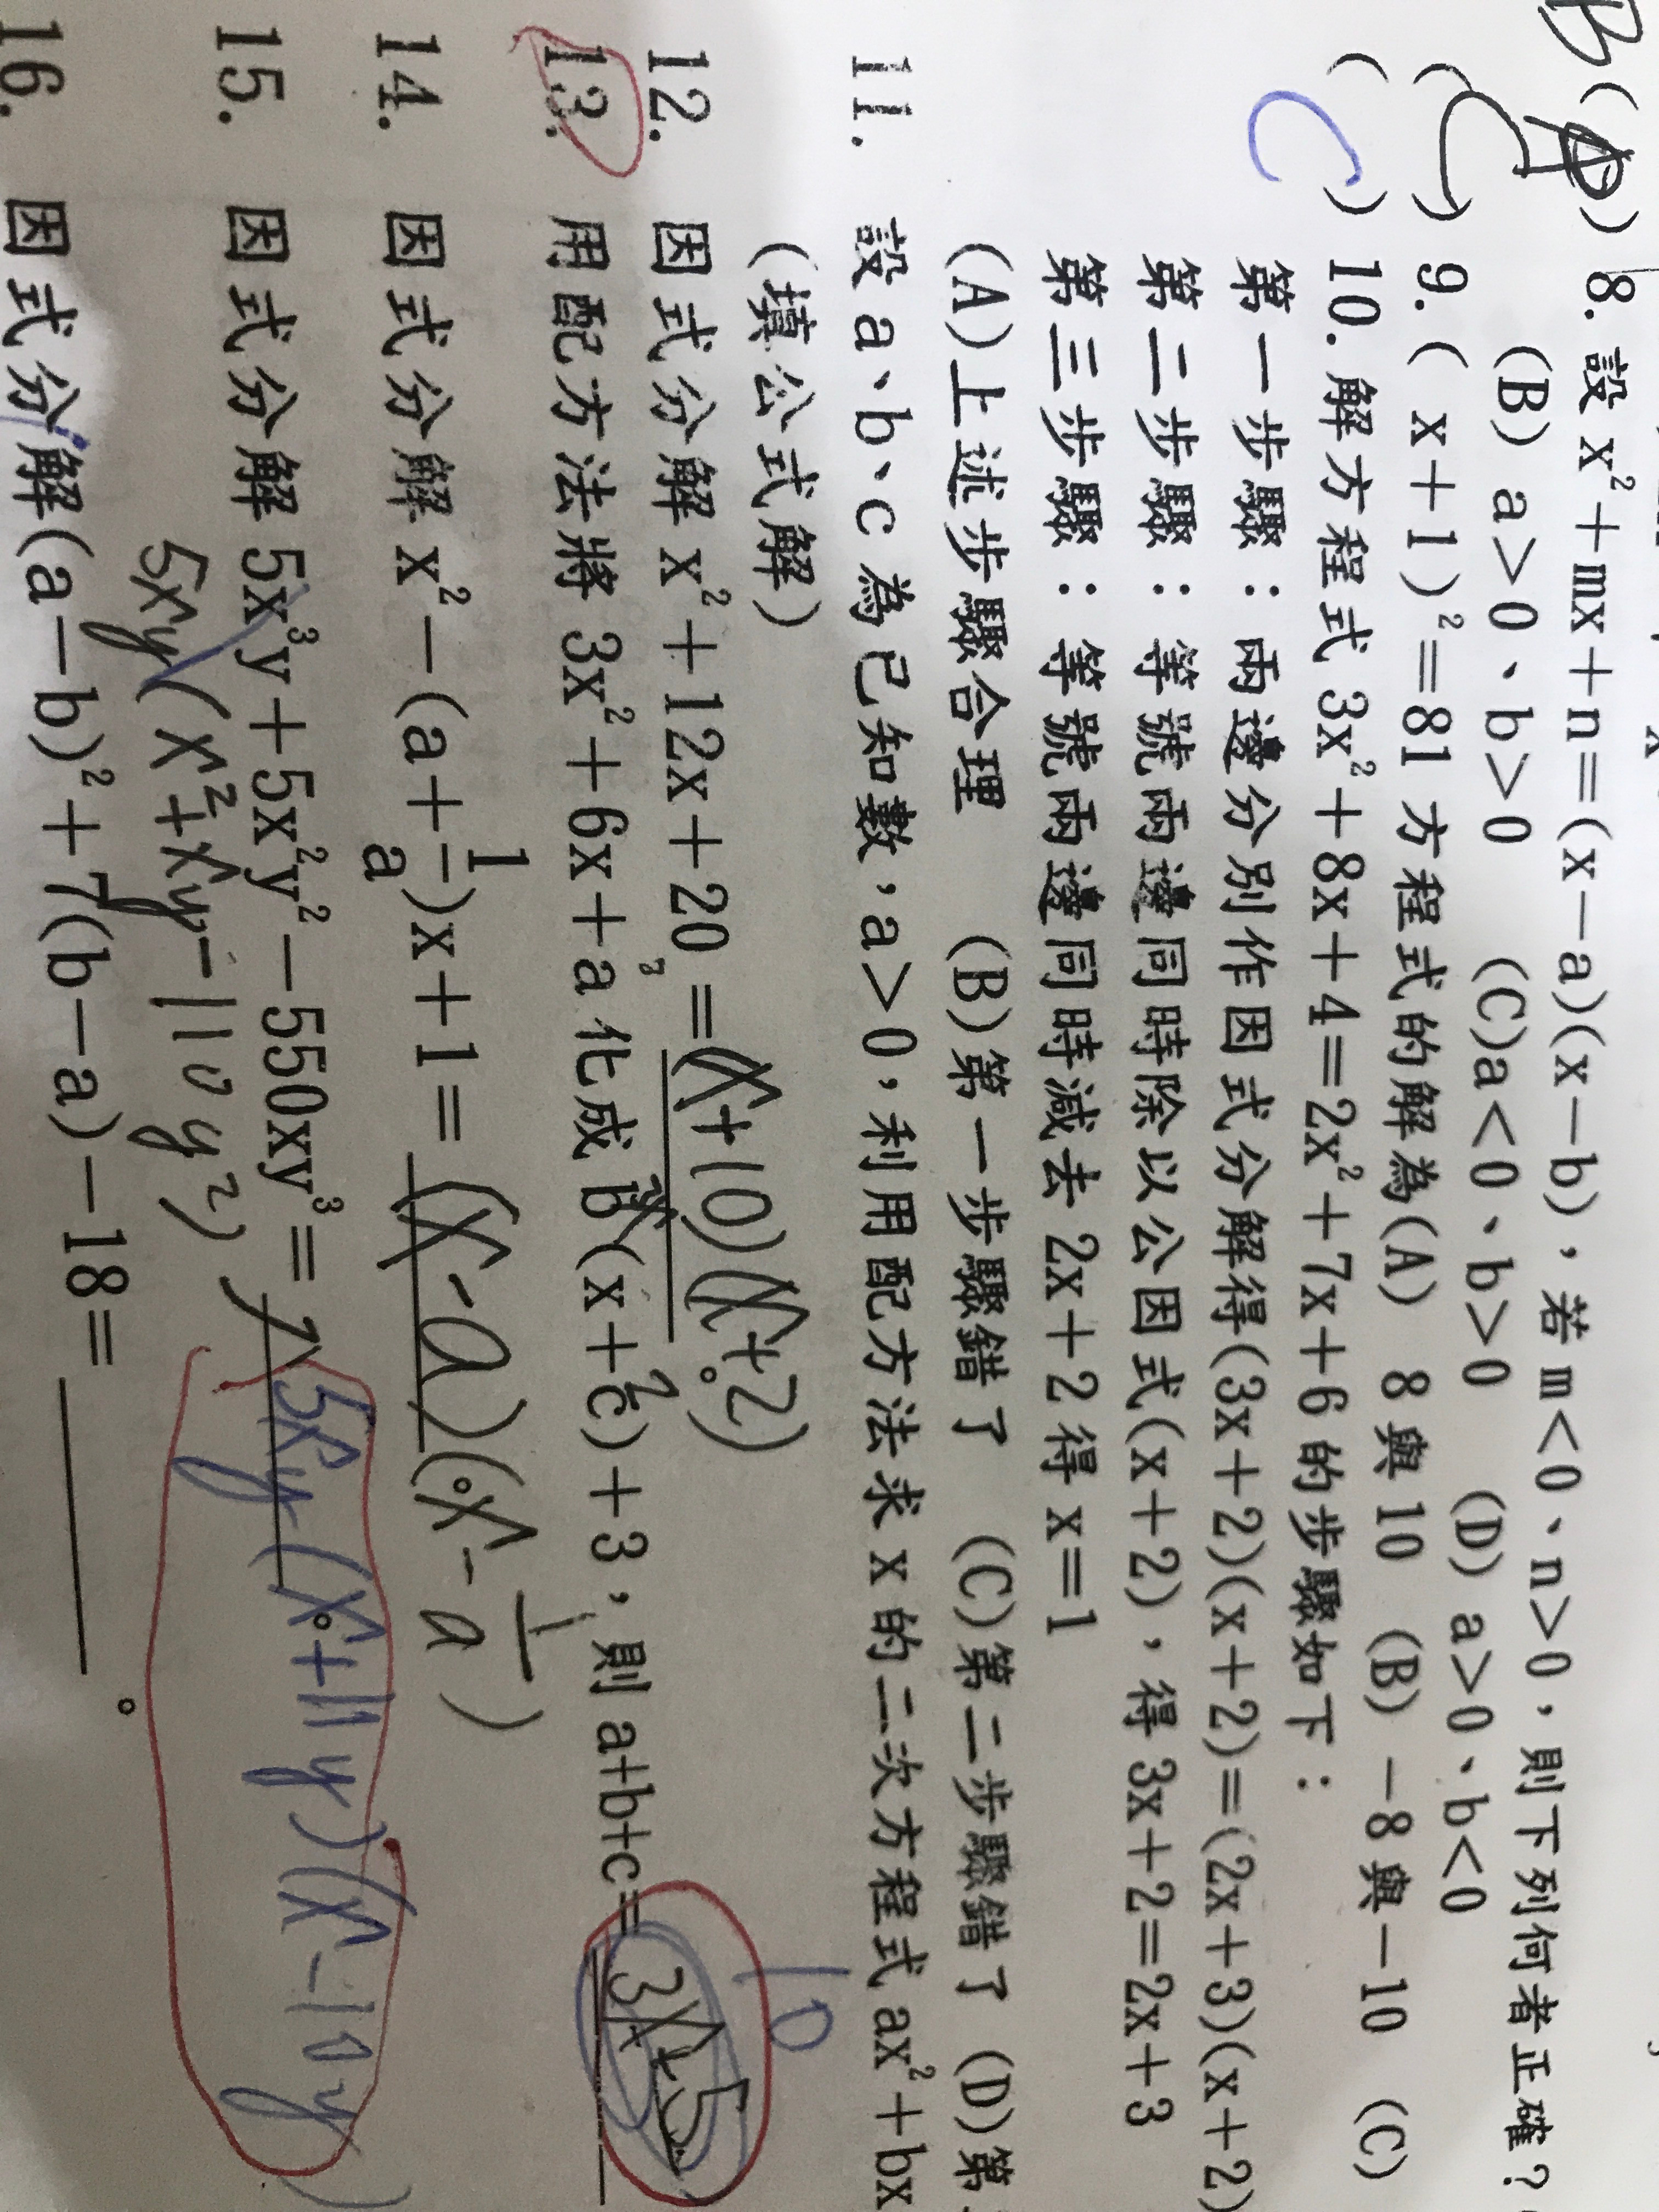 B
(A) 8. 設 x²+mx+n=(x-a)(x-b)，若 m<0、n>0，則下列何者正確？
(B) a>0、b>0 (C)a<0、b>0 (D) a>0、b<0
(C) 9.( x+1)²=81 方程式的解為(A) 8 與 10 (B) -8 與-10 (C)
( C ) 10.解方程式 3x²+8x+4=2x²+7x+6 的步驟如下：
第一步驟：兩邊分別作因式分解得(3x+2)(x+2)=(2x+3)(x+2)
第二步驟：等號兩邊同時除以公因式(x+2)，得 3x+2=2x+3
第三步驟：等號兩邊同時減去 2x+2 得 x=1
(A)上述步驟合理 (B)第一步驟錯了 (C)第二步驟錯了 (D)第
11. 設 a、b、c 為已知數，a>0，利用配方法求 x 的二次方程式 ax²+bx
(填公式解)
12. 因式分解 x²+12x+20 =(x+10)(x+2)。
13. 用配方法將 3x²+6x+a 化成 b(x+c)²+3，則 a+b+c= 10
14. 因式分解 x²-(a+1/a)x+1=(x-a)(x-1/a)。
15. 因式分解 5x³y+5x²y²-550xy³= 5xy(x+11y)(x-10y)
5xy(x²+xy-110y²)
16. 因式分解(a-b)²+7(b-a)-18= 。